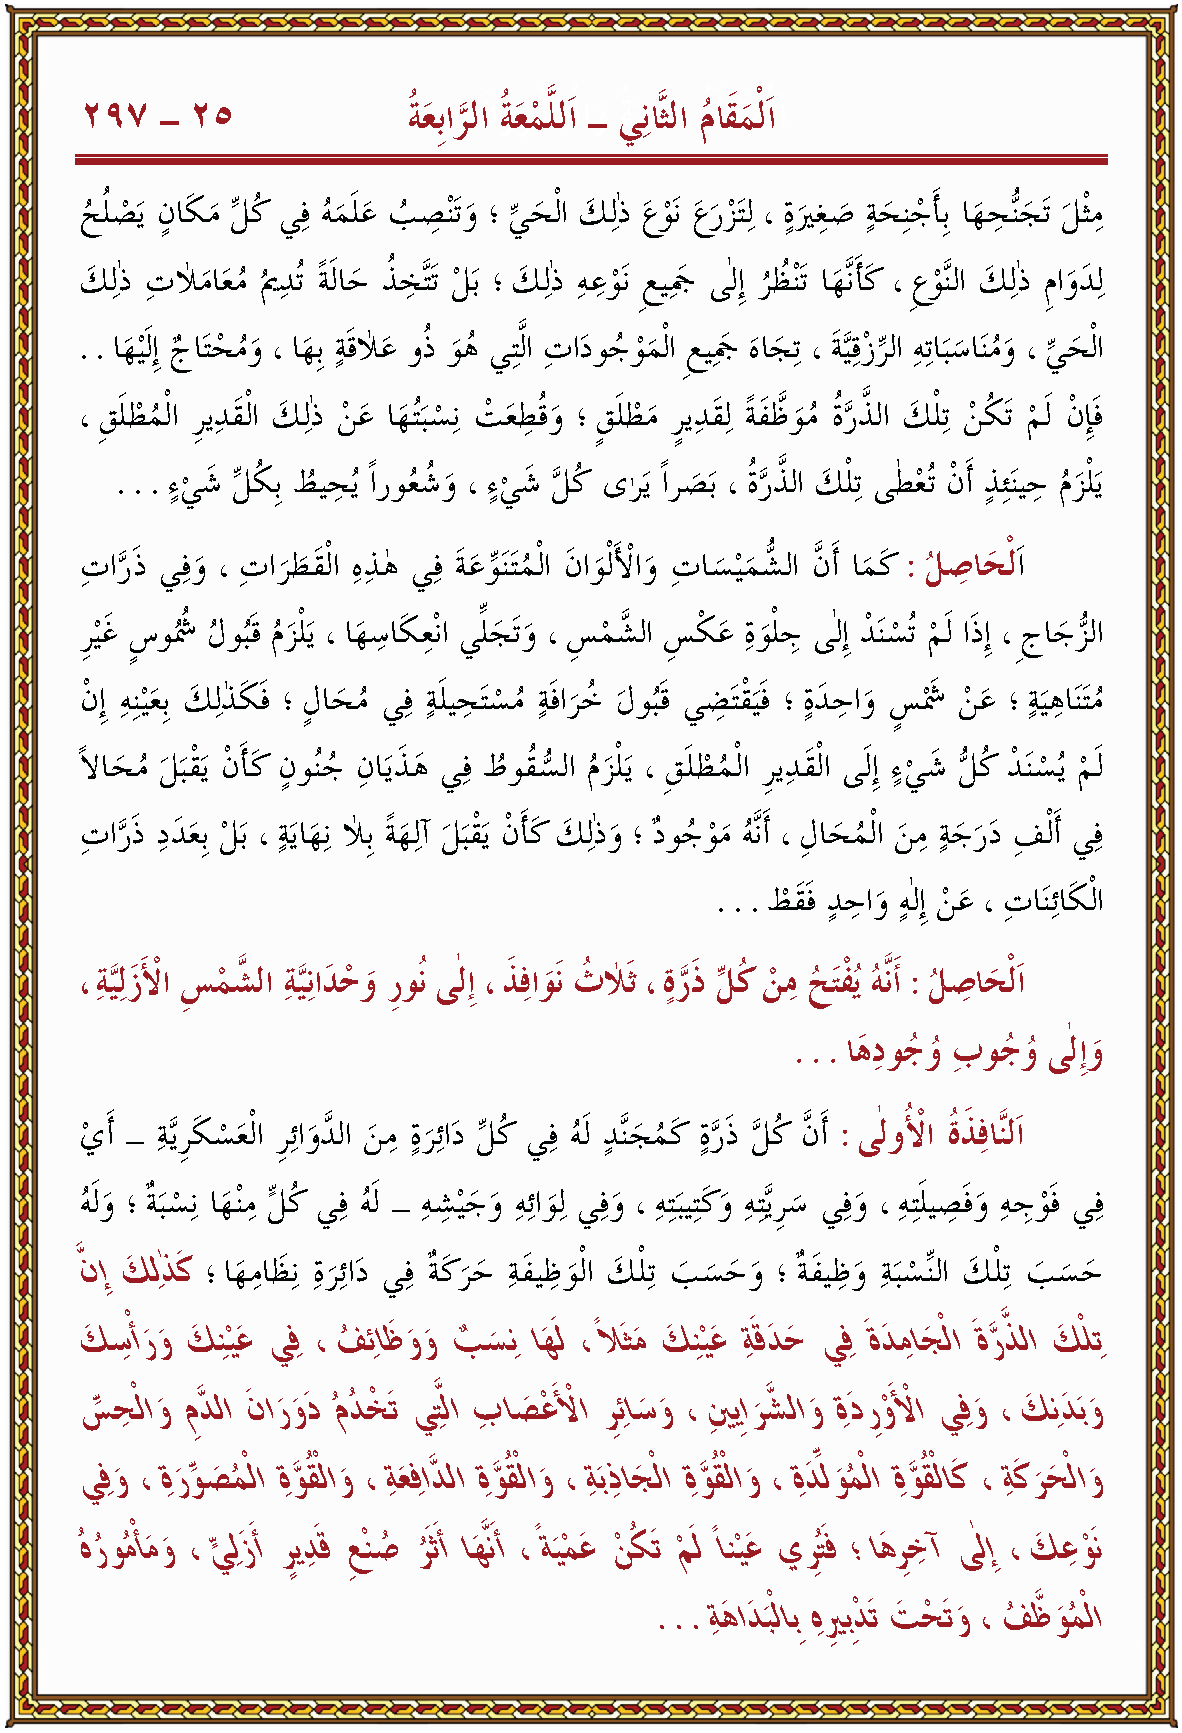 اَلْمَقَامُ الثَّانِي – اَللَّمْعَةُ الرَّابِعَةُ ٢٥ – ٢٩٧
مِثْلَ تَجَنُّحِهَا بِأَجْنِحَةٍ صَغِيرَةٍ ، لِتَزْرَعَ نَوْعَ ذٰلِكَ الْحَيِّ ؛ وَتَنْصِبُ عَلَمَهُ فِي كُلِّ مَكَانٍ يَصْلُحُ
لِدَوَامِ ذٰلِكَ النَّوْعِ ، كَأَنَّهَا تَنْظُرُ إِلٰى جَمِيعِ نَوْعِهِ ذٰلِكَ ؛ بَلْ تَتَّخِذُ حَالَةً تُدِيمُ مُعَامَلَاتِ ذٰلِكَ
الْحَيِّ ، وَمُنَاسَبَاتِهِ الرِّزْقِيَّةَ ، تِجَاهَ جَمِيعِ الْمَوْجُودَاتِ الَّتِي هُوَ ذُو عَلَاقَةٍ بِهَا ، وَمُحْتَاجٌ إِلَيْهَا . .
فَإِنْ لَمْ تَكُنْ تِلْكَ الذَّرَّةُ مُوَظَّفَةً لِقَدِيرٍ مُطْلَقٍ ؛ وَقُطِعَتْ نِسْبَتُهَا عَنْ ذٰلِكَ الْقَدِيرِ الْمُطْلَقِ ،
يَلْزَمُ حِينَئِذٍ أَنْ تُعْطٰى تِلْكَ الذَّرَّةُ ، بَصَراً يَرٰى كُلَّ شَيْءٍ ، وَشُعُوراً يُحِيطُ بِكُلِّ شَيْءٍ . . .
اَلْحَاصِلُ : كَمَا أَنَّ الشُّمَيْسَاتِ وَالْأَلْوَانَ الْمُتَنَوِّعَةَ فِي هٰذِهِ الْقَطَرَاتِ ، وَفِي ذَرَّاتِ
الزُّجَاجِ ، إِذَا لَمْ تُسْنَدْ إِلٰى جِلْوَةِ عَكْسِ الشَّمْسِ ، وَتَجَلِّي انْعِكَاسِهَا ، يَلْزَمُ قَبُولُ شُمُوسٍ غَيْرِ
مُتَنَاهِيَةٍ ؛ عَنْ شَمْسٍ وَاحِدَةٍ ؛ فَيَقْتَضِي قَبُولَ خُرَافَةٍ مُسْتَحِيلَةٍ فِي مُحَالٍ ؛ فَكَذٰلِكَ بِعَيْنِهِ إِنْ
لَمْ يُسْنَدْ كُلُّ شَيْءٍ إِلَى الْقَدِيرِ الْمُطْلَقِ ، يَلْزَمُ السُّقُوطُ فِي هَذَيَانِ جُنُونٍ كَأَنْ يَقْبَلَ مُحَالاً
فِي أَلْفِ دَرَجَةٍ مِنَ الْمُحَالِ ، أَنَّهُ مَوْجُودٌ ؛ وَذٰلِكَ كَأَنْ يَقْبَلَ آلِهَةً بِلَا نِهَايَةٍ ، بَلْ بِعَدَدِ ذَرَّاتِ
الْكَائِنَاتِ ، عَنْ إِلٰهٍ وَاحِدٍ فَقَطْ . . .
اَلْحَاصِلُ : أَنَّهُ يُفْتَحُ مِنْ كُلِّ ذَرَّةٍ ، ثَلَاثُ نَوَافِذَ ، إِلٰى نُورِ وَحْدَانِيَّةِ الشَّمْسِ الْأَزَلِيَّةِ ،
وَإِلٰى وُجُوبِ وُجُودِهَا . . .
اَلنَّافِذَةُ الْأُولٰى : أَنَّ كُلَّ ذَرَّةٍ كَمُجَنَّدٍ لَهُ فِي كُلِّ دَائِرَةٍ مِنَ الدَّوَائِرِ الْعَسْكَرِيَّةِ – أَيْ
فِي فَوْجِهِ وَفَصِيلَتِهِ ، وَفِي سَرِيَّتِهِ وَكَتِيبَتِهِ ، وَفِي لِوَائِهِ وَجَيْشِهِ – لَهُ فِي كُلٍّ مِنْهَا نِسْبَةٌ ؛ وَلَهُ
حَسَبَ تِلْكَ النِّسْبَةِ وَظِيفَةٌ ؛ وَحَسَبَ تِلْكَ الْوَظِيفَةِ حَرَكَةٌ فِي دَائِرَةِ نِظَامِهَا ؛ كَذٰلِكَ إِنَّ
تِلْكَ الذَّرَّةَ الْجَامِدَةَ فِي حَدَقَةِ عَيْنِكَ مَثَلاً ، لَهَا نِسَبٌ وَوَظَائِفُ ، فِي عَيْنِكَ وَرَأْسِكَ
وَبَدَنِكَ ، وَفِي الْأَوْرِدَةِ وَالشَّرَايِينِ ، وَسَائِرِ الْأَعْصَابِ الَّتِي تَخْدُمُ دَوَرَانَ الدَّمِ وَالْحِسِّ
وَالْحَرَكَةِ ، كَالْقُوَّةِ الْمُوَلِّدَةِ ، وَالْقُوَّةِ الْجَاذِبَةِ ، وَالْقُوَّةِ الدَّافِعَةِ ، وَالْقُوَّةِ الْمُصَوِّرَةِ ، وَفِي
نَوْعِكَ ، إِلٰى آخِرِهَا ؛ فَتُرِي عَيْناً لَمْ تَكُنْ عَمْيَةً ، أَنَّهَا أَثَرُ صُنْعِ قَدِيرٍ أَزَلِيٍّ ، وَمَأْمُورُهُ
الْمُوَظَّفُ ، وَتَحْتَ تَدْبِيرِهِ بِالْبَدَاهَةِ . . .